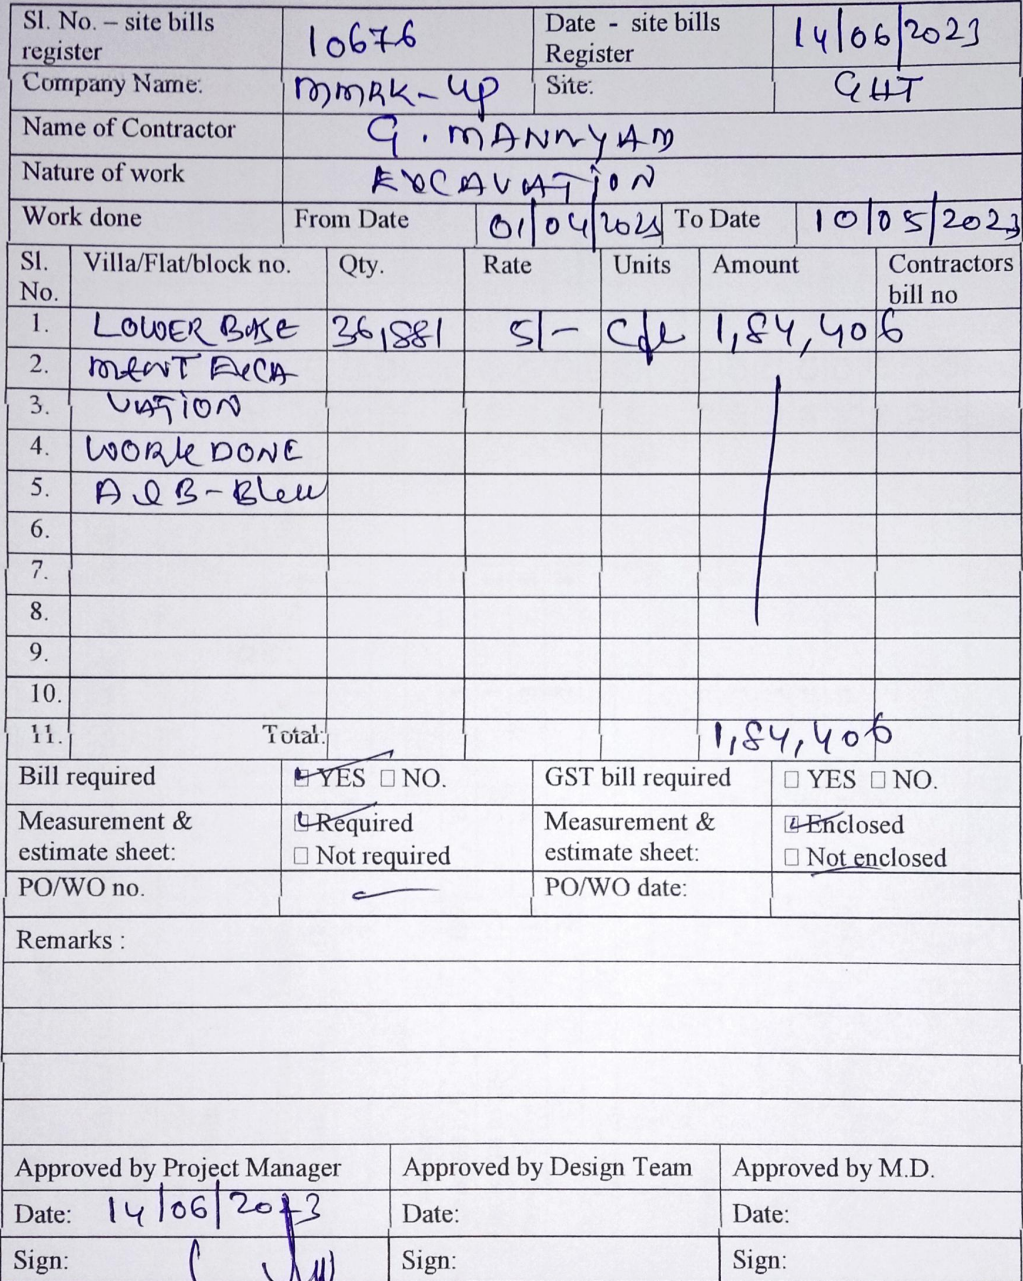 Sl. No. – site bills register 10676 Date - site bills Register 14/06/2023
Company Name: MMRK-UP Site: GHT
Name of Contractor G. MANNYAM
Nature of work EXCAVATION
Work done From Date 01/04/2023 To Date 10/05/2023
Sl. No. Villa/Flat/block no. Qty. Rate Units Amount Contractors bill no
1. LOWER BASE 36,881 5/- cft 1,84,406
2. MENT EXCA
3. VATION
4. WORK DONE
5. A & B-
6.
7.
8.
9.
10.
11. Total: 1,84,406
Bill required ☑ YES ☐ NO. GST bill required ☐ YES ☐ NO.
Measurement & estimate sheet: ☑ Required ☐ Not required Measurement & estimate sheet: ☑ Enclosed ☐ Not enclosed
PO/WO no. PO/WO date:
Remarks :
Approved by Project Manager Approved by Design Team Approved by M.D.
Date: 14/06/2023 Date: Date:
Sign: Sign: Sign: